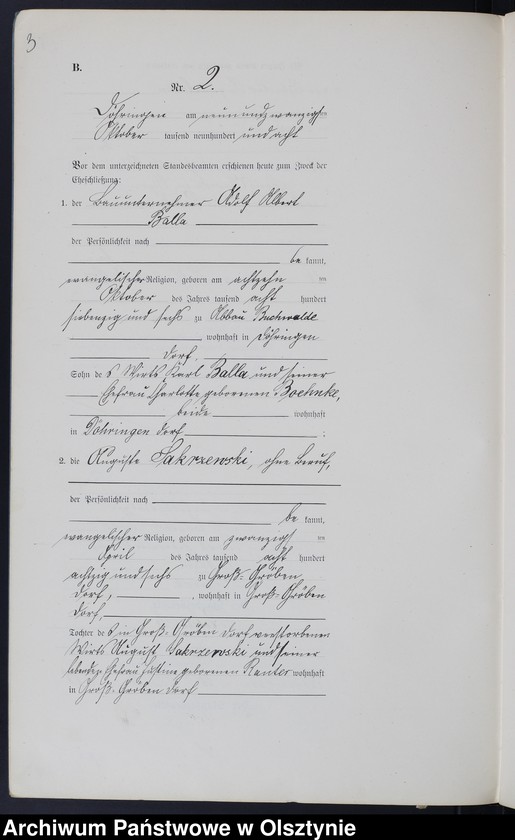 3
B.
Nr. 2.
Döhringen am neunundzwanzigsten
Oktober tausend neunhundert und acht
Vor dem unterzeichneten Standesbeamten erschienen heute zum Zweck der
Eheschließung:
1. der Bauunternehmer Adolf Albert
Balla
der Persönlichkeit nach
be kannt,
evangelischer Religion, geboren am achtzehn ten
Oktober des Jahres tausend acht hundert
siebenzig und sechs zu Abbau Buchwalde
wohnhaft in Döhringen
Dorf.
Sohn des Wirts Karl Balla und seiner
Ehefrau Charlotte geborenen Boehnke,
beide wohnhaft
in Döhringen Dorf ;
2. die Auguste Sakrzewski, ohne Beruf,
der Persönlichkeit nach
be kannt,
evangelischer Religion, geboren am zwanzigs ten
April des Jahres tausend acht hundert
achtzig und sechs zu Groß-Gröben
Dorf, , wohnhaft in Groß-Gröben
Dorf,
Tochter des in Groß-Gröben Dorf verstorbenen
Wirts August Sakrzewski und seiner
Ehefrau Justine geborenen Kanter wohnhaft
in Groß-Gröben Dorf
Archiwum Państwowe w Olsztynie